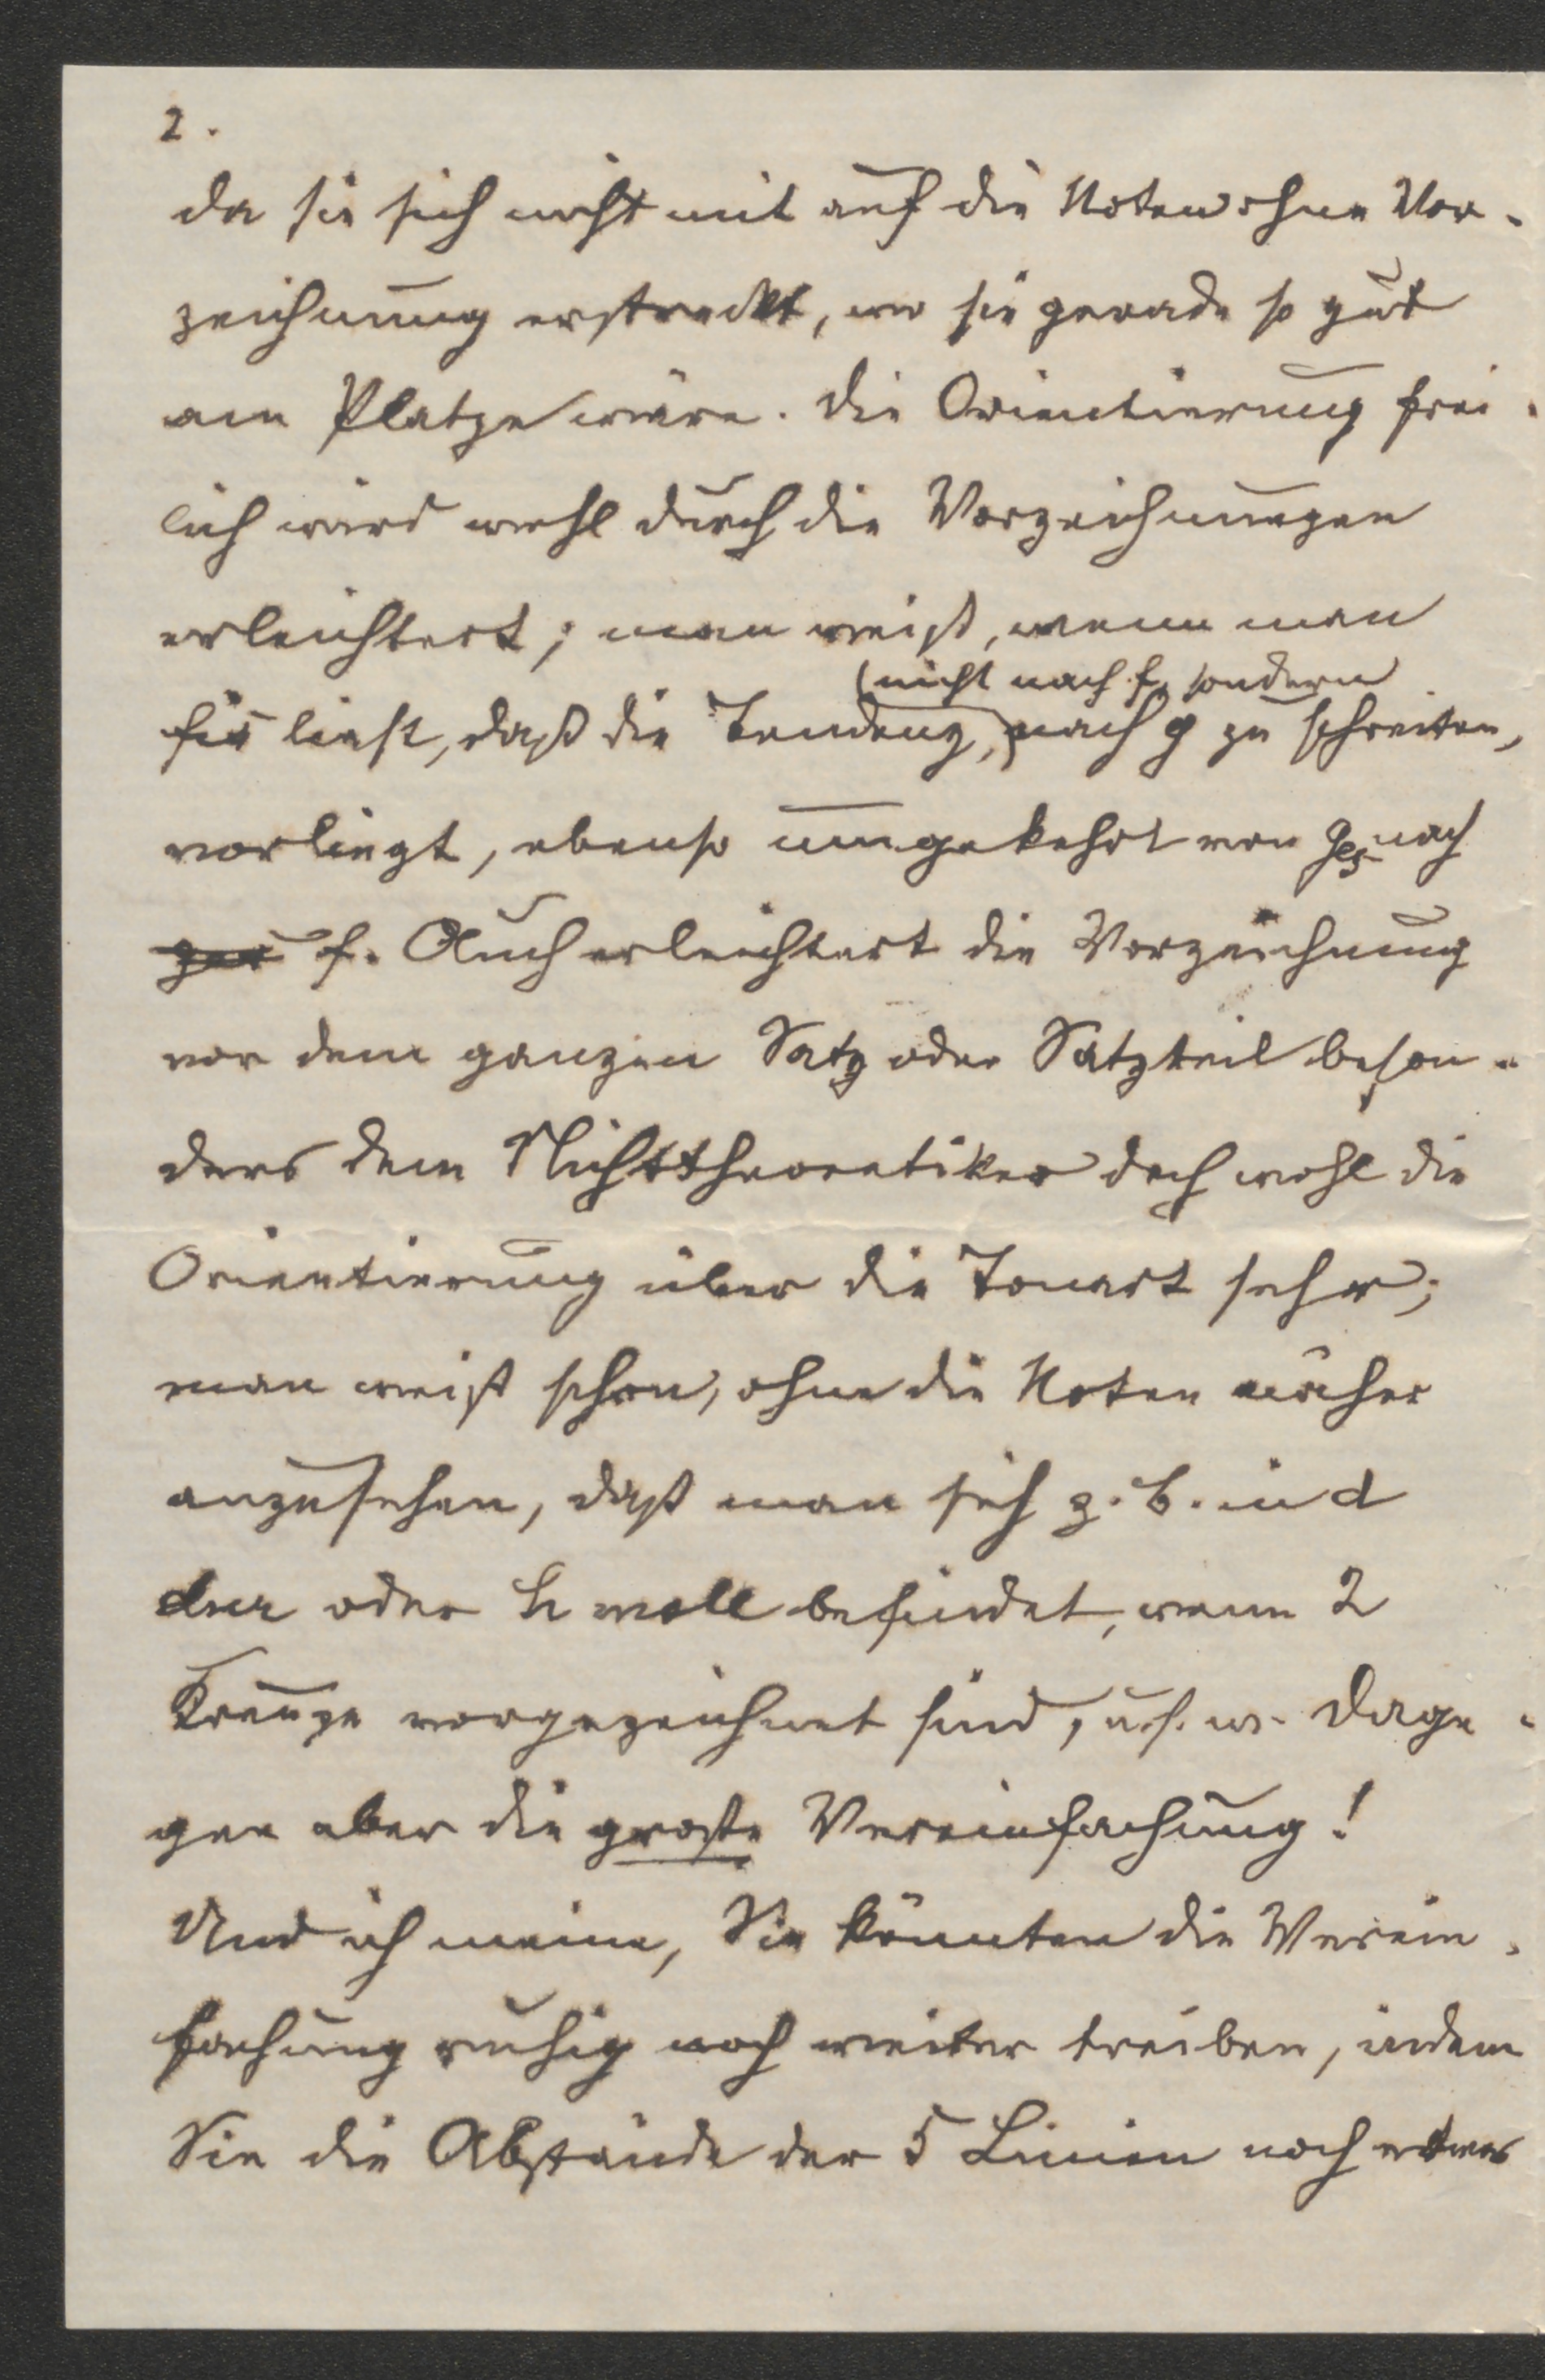 2.
da sie sich nicht mit auf die Noten ohne Vor-
zeichnung erstreckt, wo sie gerade so gut
am Platze wäre. Die Orientierung frei-
lich wird wohl durch die Vorzeichnungen
erleichtert; man weiß, wenn man
(nicht nach f, sondern
fis liest, daß die Tendenz, nach g zu schreiten,
vorliegt, ebenso umgekehrt von ges nach
f. Auch erleichtert die Vorzeichnung
vor dem ganzen Satz oder Satzteil beson-
ders dem Nichttheoretiker doch wohl die
Orientierung über die Tonart sehr;
man weiß schon, ohne die Noten näher
anzusehen, daß man sich z. B. in d
dur oder h moll befindet, wenn 2
Kreuze vorgezeichnet sind, u. s. w. Dage-
gen aber die große Vereinfachung!
Und ich meine, Sie könnten die Verein-
fachung ruhig noch weiter treiben, indem
Sie die Abstände der 5 Linien noch etwas